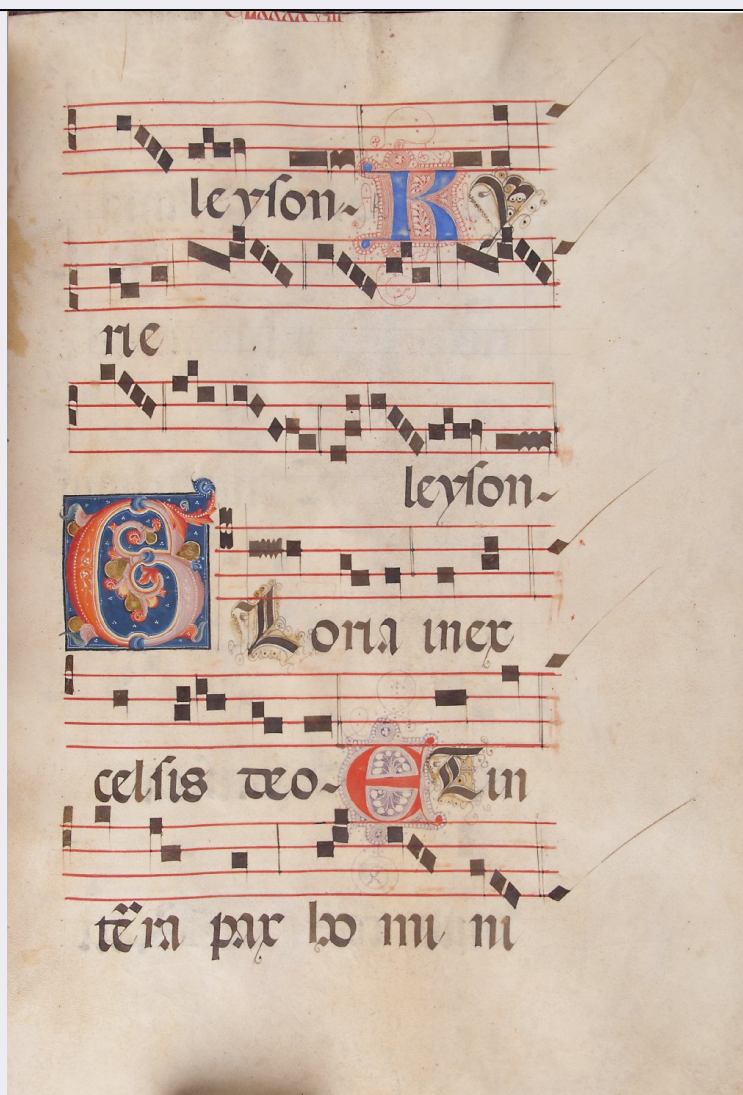 leyson- Ky
rie
leyson-
GLoria inex
celsis deo- Et in
terra pax ho mini